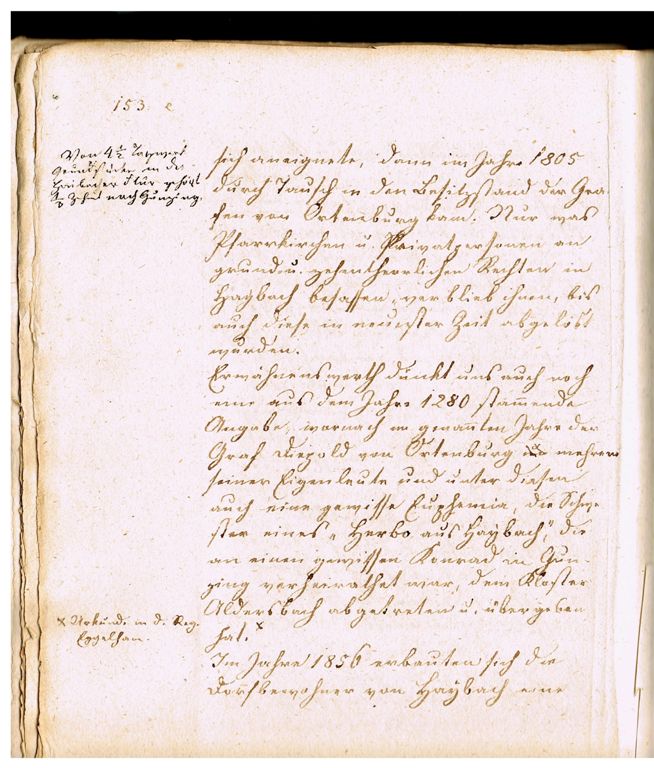 153. c
Von 4 1/2 Tagwerk
Grundstücken in der
Haibacher Flur gehört
1/2 Zehent nach Gunzing.
sich aneignete, dann im Jahre 1805
durch Tausch in den Besitzstand der Gra-
fen von Ortenburg kam. Nur was
Pfarrkirchen u. Privatpersonen an
grund u. zehentherrlichen Rechten in
Haybach besassen, verblieb ihnen, bis
auch diese in neuester Zeit abgelöst
wurden.
Erwähnenswerth dünkt uns auch noch
eine aus dem Jahre 1280 stammende
Angabe, wornach im genannten Jahre der
Graf Diepold von Ortenburg mehrere
seiner Eigenleute und unter diesen
auch eine gewisse Euphemia, die Schwe-
ster eines „Herbo aus Haybach“, die
an einen gewissen Konrad in Gun-
zing verheirathet war, dem Kloster
Aldersbach abgetreten u. übergeben
hat. x
x Urkunde in d. Reg.
Eggelham.
Im Jahre 1856 erbauten sich die
Dorfbewohner von Haybach eine